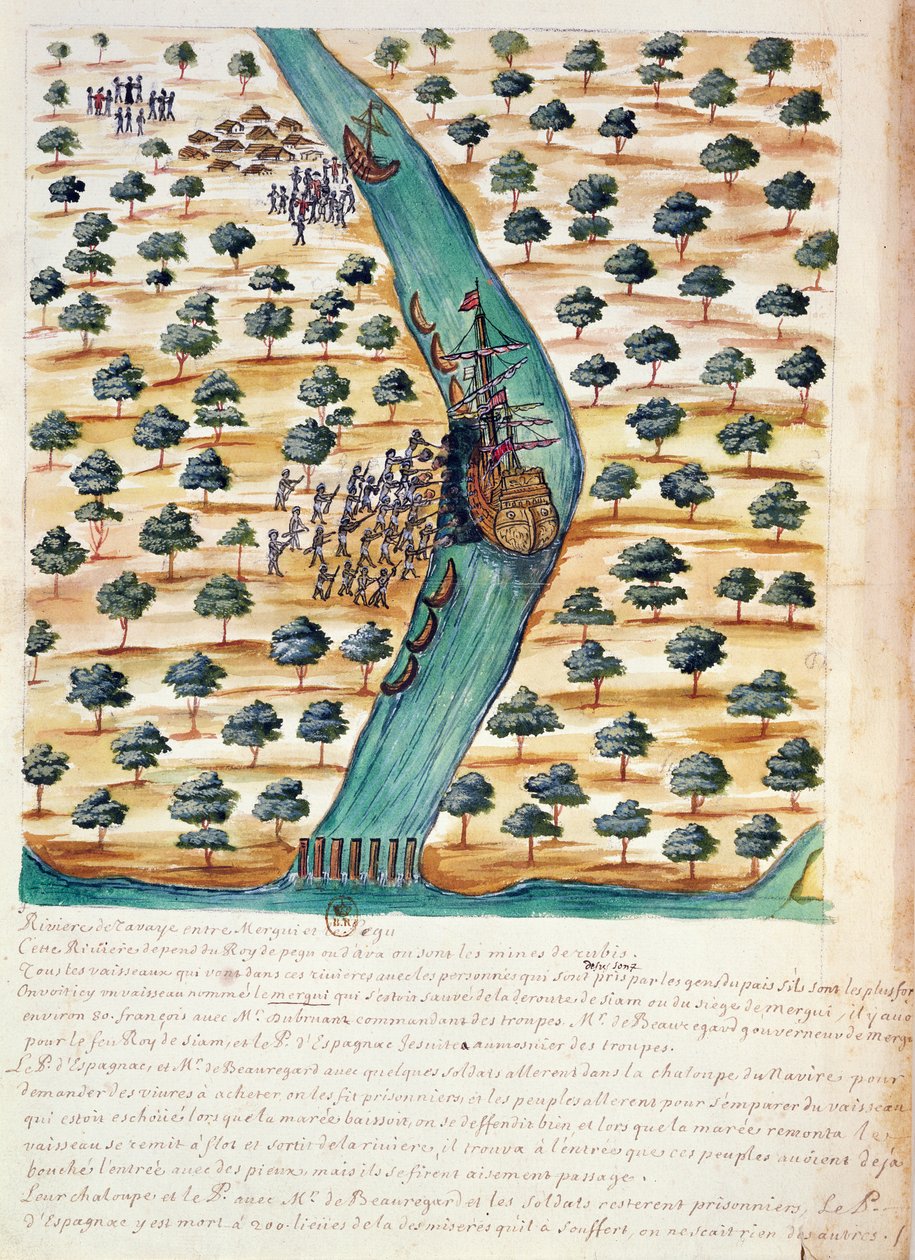 Riviere de Tavaye entre Mergui et le Pegu
B.R
Cette Riviere depend du Roy de pegu ou d'ava ou sont les mines de rubis.
desus sont
Tous les vaisseaux qui vont dans ces rivieres avec les personnes qui sont pris par les gens du païs s'ils sont les plus for
On voit icy un vaisseau nommé le mergui qui s'estoit sauvé de la deroute de siam ou du siege de mergui, il y avo
environ 80. françois avec Mr. Dubruant commandant des troupes. Mr. de Beauregard gouverneur de Mergu
pour le feu Roy de siam, et le P. d'Espagnac Jesuite aumosnier des troupes.
Le P. d'Espagnac, et Mr. de Beauregard avec quelques soldats allerent dans la chaloupe du Navire pour
demander des vivres à acheter on les fit prisonniers, et les peuples allerent pour s'emparer du vaisseau
qui estoit eschoüé lorsque la marée baissoit, on se deffendit bien et lors que la marée remonta le
vaisseau se remit à flot et sortit de la riviere, il trouva à l'entrée que ces peuples avoient deja
bouché l'entrée avec des pieux, mais ils se firent aisement passage.
Leur chaloupe et le P. avec Mr. de Beauregard et les soldats resterent prisonniers, Le P.
d'Espagnac y est mort à 200. lieües de la des miseres qu'il à souffert, on ne scait rien des autres.